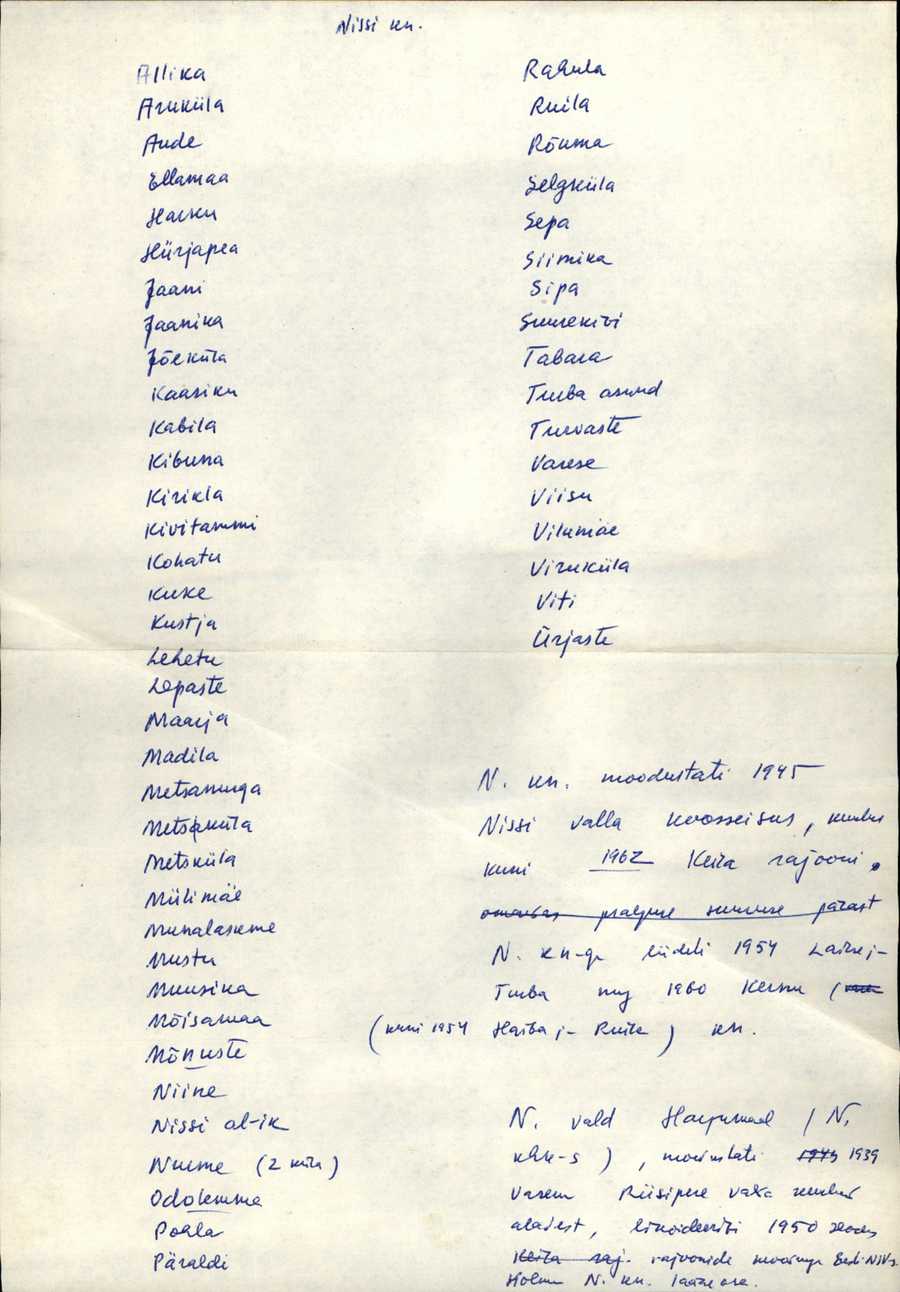 Nissi kn.
Allika
Aruküla
Aude
Ellamaa
Haiku
Hürjapea
Jaani
Jaanika
Jõeküla
Kaasiku
Kabila
Kibuna
Kirikla
Kivitammi
Kohatu
Kuke
Kustja
Lehetu
Lepaste
Maarja
Madila
Metsanurga
Metsaküla
Metsküla
Mülimäe
Munalaskme
Mustu
Muusika
Mõisamaa
Mõnuste
Niine
Nissi al-ik
Nurme (2 küla)
Odolemma
Pohla
Päraldi
Rahula
Ruila
Rõuma
Selgküla
Sepa
Siimika
Sipa
Suurekivi
Tabara
Turba asund
Turvaste
Varese
Viisu
Vilumäe
Viruküla
Viti
Ürjaste
N. kn. moodustati 1945
Nissi valla koosseisus, kuulus
kuni 1962 Keila rajooni.
praeguse suuruse pärast
N. kn-ga liideti 1954 Laitse j-
Turba ning 1960 Kernu (
(kuni 1954 Haiba j- Ruila) kn.
N. vald Harjumaal (N.
khk-s), moodustati 1945 1939
varem Riisipere valla
aladest, likvideeriti 1950 seoses
Keila raj. rajoonide Eesti NSV-s.
Hõlmas N. kn. lääne osa.